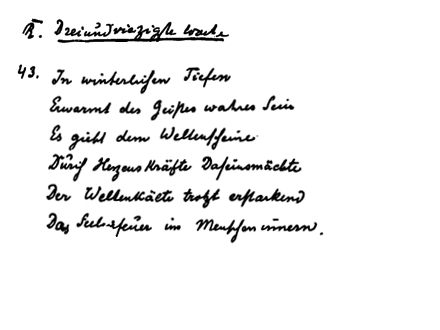 R. Dreiundvierzigste Woche
43. In winterlichen Tiefen
Erwarmt des Geistes wahres Sein
Es giebt dem Weltenscheine
Durch Herzenskräfte Daseinsmächte
Der Weltenkälte trotzt erstarkend
Das Seelenfeuer im Menscheninnern.